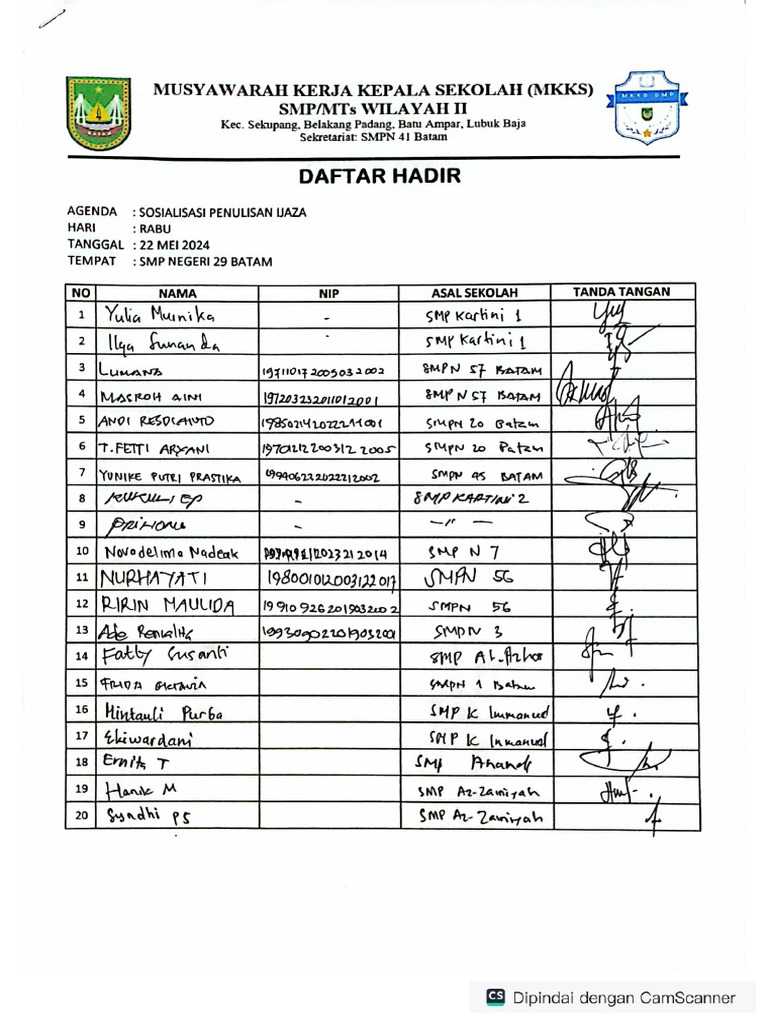 MUSYAWARAH KERJA KEPALA SEKOLAH (MKKS)
SMP/MTs WILAYAH II
Kec. Sekupang, Belakang Padang, Batu Ampar, Lubuk Baja
Sekretariat: SMPN 41 Batam
MKKS SMP
DAFTAR HADIR
AGENDA : SOSIALISASI PENULISAN IJAZA
HARI : RABU
TANGGAL : 22 MEI 2024
TEMPAT : SMP NEGERI 29 BATAM
NO NAMA NIP ASAL SEKOLAH TANDA TANGAN
1 Yulia Murnika - SMP Kartini 1
2 Ilga Sunanda SMP Kartini 1
3 LUMANA 197110172005032002 SMPN 57 BATAM
4 MASROH AINI 197203232011012001 SMP N 57 BATAM
5 ANDI RESDIANTO 198502142022211001 SMPN 20 Batam
6 T. FETTI ARYANI 197012122003122005 SMPN 20 Batam
7 YUNIKE PUTRI PRASTIKA 199406232022212002 SMPN 45 BATAM
8 - SMP KARTINI 2
9 - — " —
10 Novodelima Nadeak SMP N 7
11 NURHAYATI 198001012003122017 SMPN 56
12 RIRIN MAULIDA 199109262019032002 SMPN 56
13 Ade 199309022019032001 SMPN 3
14 Fatty Susanti SMP Al-Azhar
15 FRIDA SMPN 1 Batam
16 Mintauli Purba SMP K Immanuel
17 Ekiwardani SMP K Immanuel
18 Ernita T SMP
19 Hanik M SMP Az-Zamiyah
20 Syndhi PS SMP Az-Zamiyah
CS Dipindai dengan CamScanner